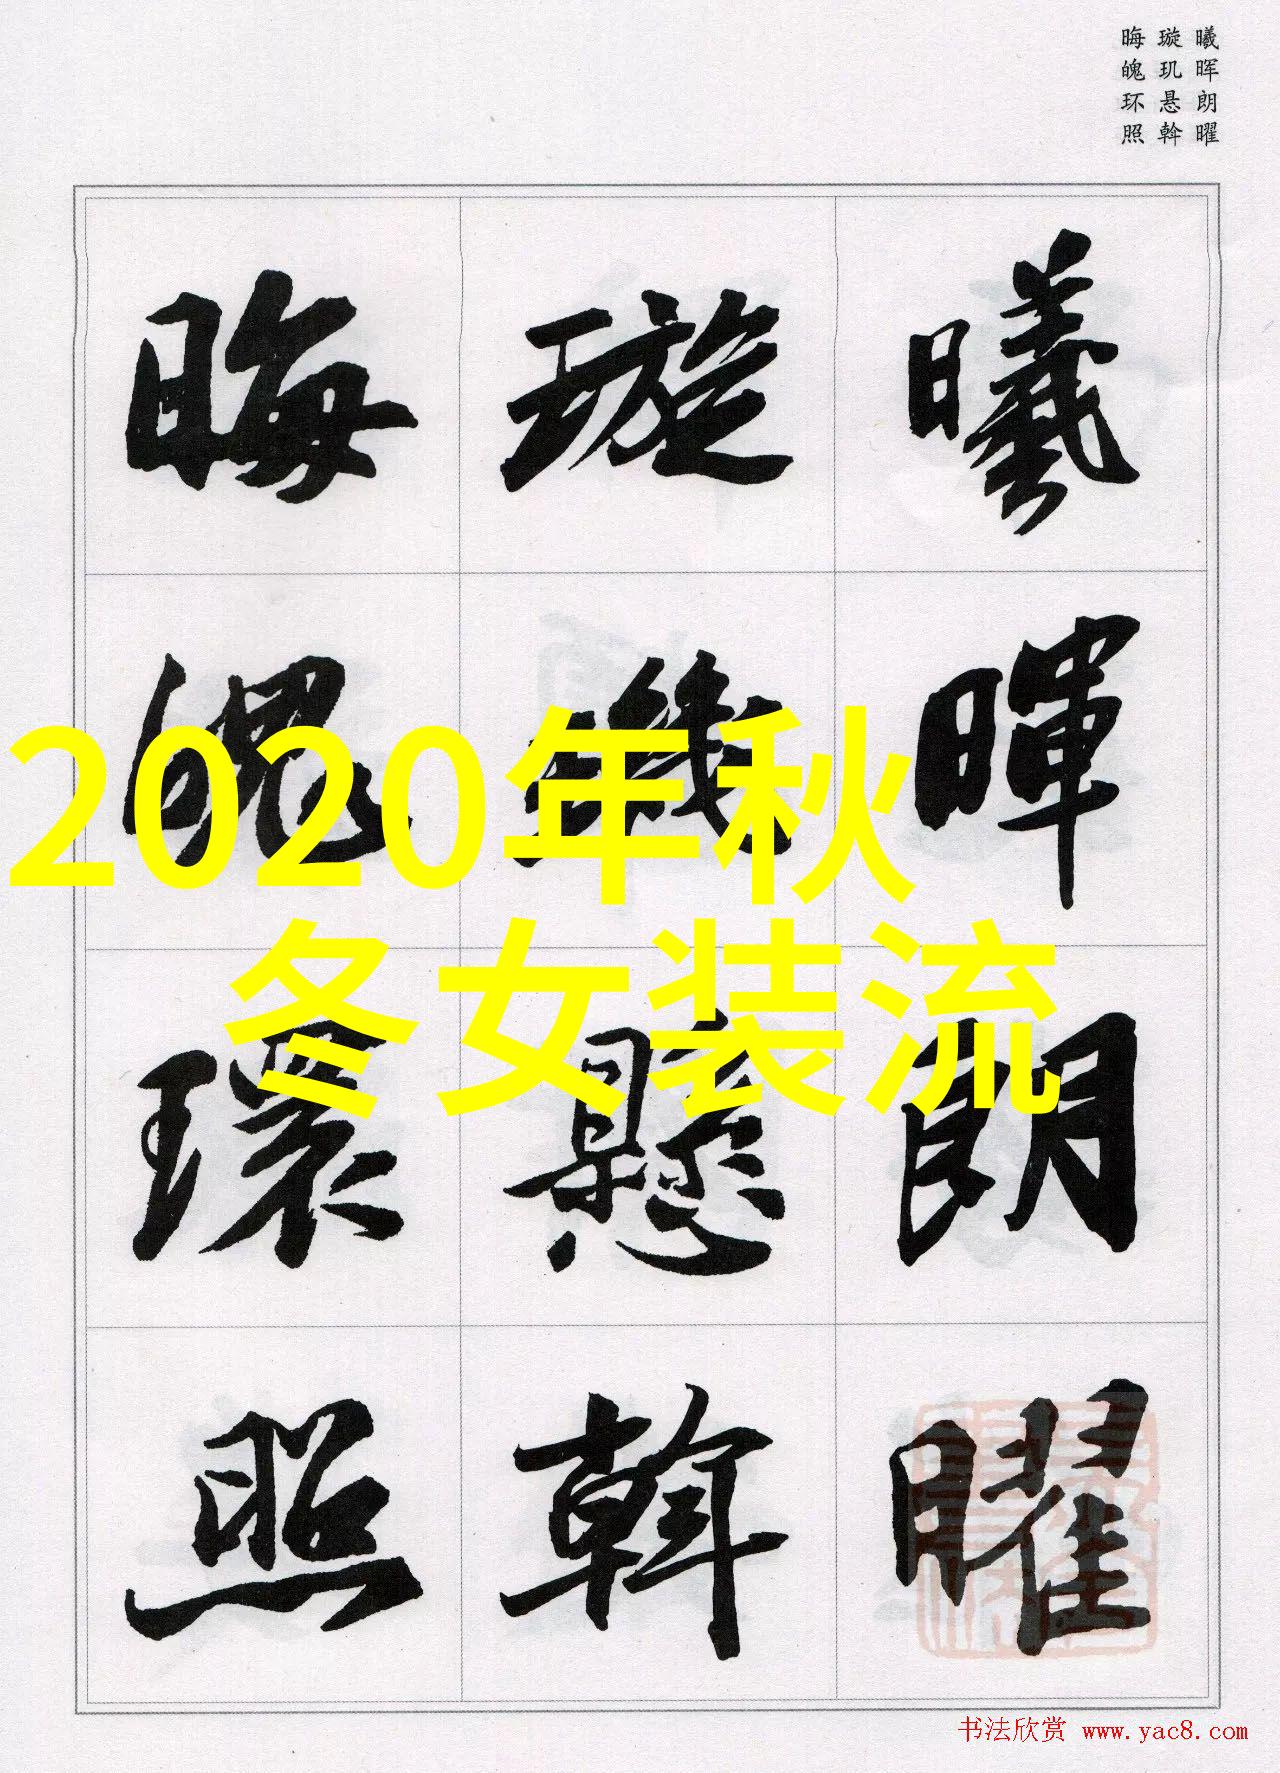 曦晖朗曜
璇玑悬斡
晦魄环照
曦暉朗曜
璇璣懸斡
晦魄環照
2020年秋
冬女装流
书法欣赏 www.yac8.com